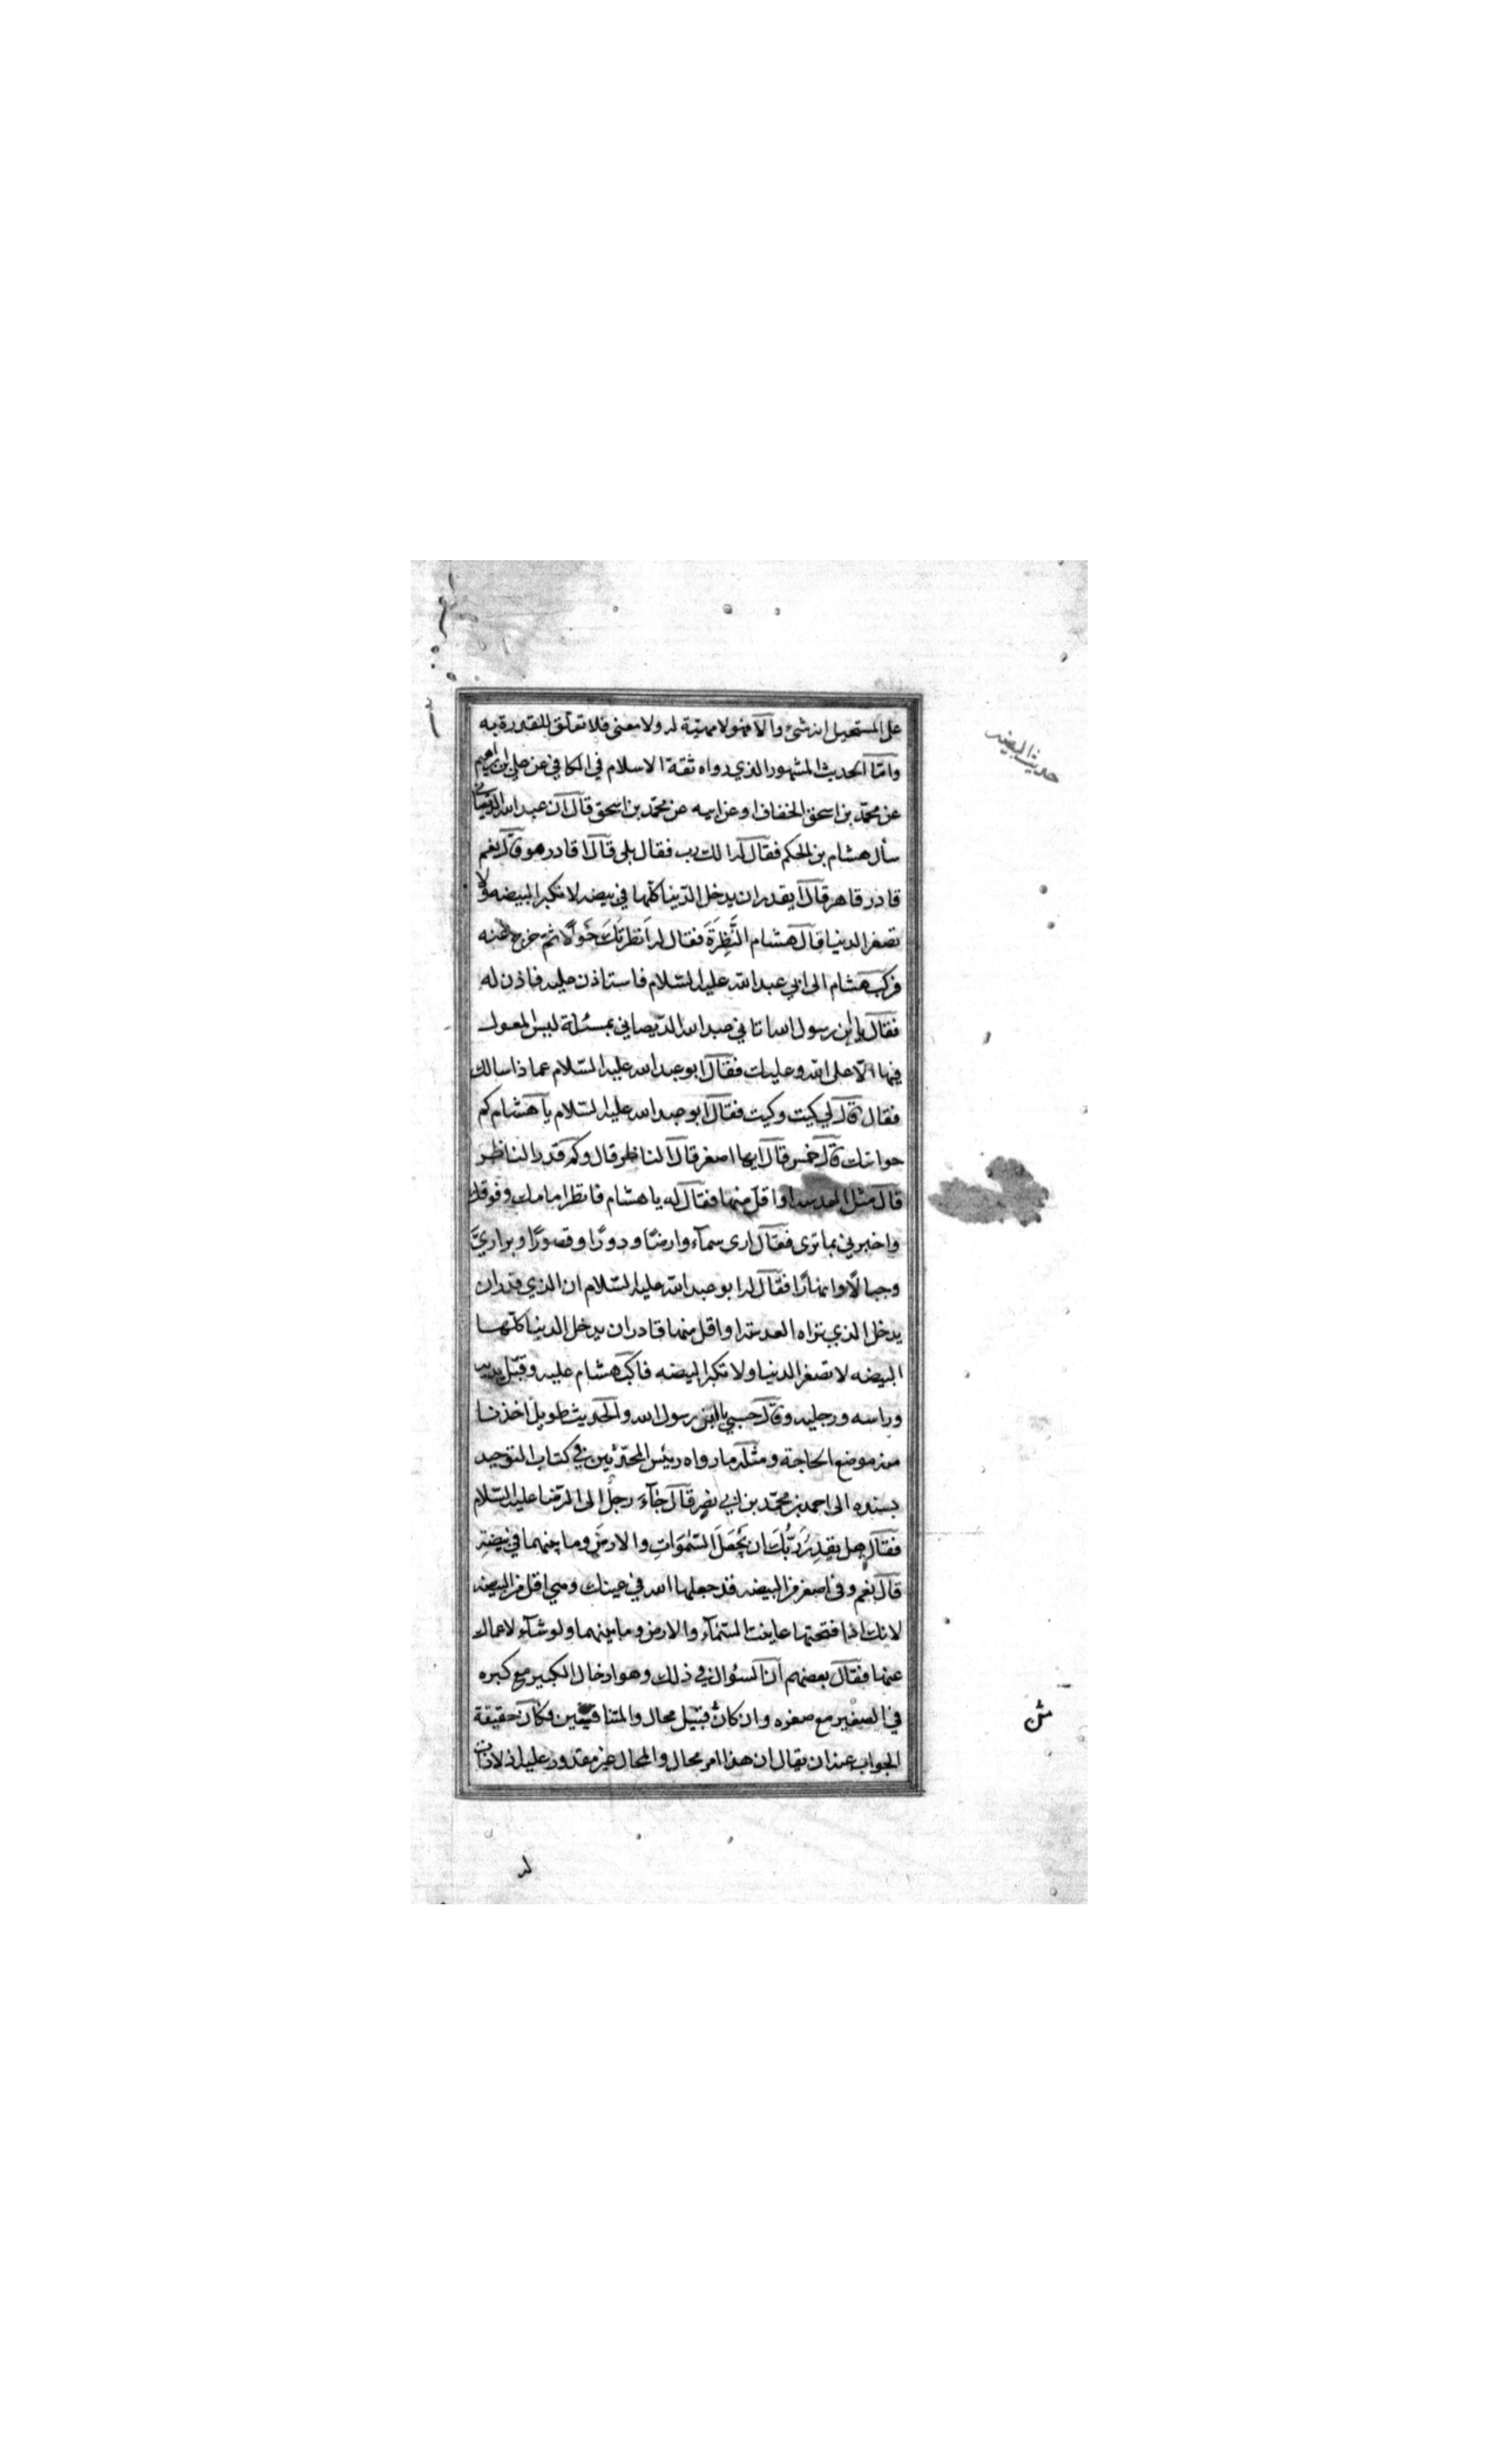 على المستحيل انه شئ والا فهو لا مهية له ولا معنى فلا تعلق للقدرة به
وامّا الحديث المشهور الذي رواه ثقة الاسلام في الكافي عن علي بن ابراهيم
عن محمّد بن اسحق الخفاف او عن ابيه عن محمّد بن اسحق قال ان عبد الله الديصاني
سأل هشام بن الحكم فقال له الك رب فقال بلى قال اقادر هو قال نعم
قادر قاهر قال ايقدر ان يدخل الدّنيا كلّها في بيضه لا تكبر البيضه ولا
تصغر الدنيا قال هشام النَّظِرَةَ فقال له انظرتك حولًا ثم خرج عنه
فركب هشام الى ابي عبد الله عليه السّلام فاستاذن عليه فاذن له
فقال يا ابن رسول الله اتاني عبد الله الدّيصاني بمسئلة ليس المعول
فيها الّا على الله وعليك فقال ابو عبد الله عليه السّلام عما ذا سالك
فقال قال لي كيت وكيت فقال ابو عبد الله عليه السّلام يا هشام كم
حواسك قال خمس قال ايها اصغر قال الناظر قال وكم قدر الناظر
قال مثل العدسه او اقل منها فقال له يا هشام فانظر امامك وفوقك
واخبرني بما ترى فقال ارى سمآء وارضًا ودورًا وقصورًا وبراريَّ
وجبالًا وانهارًا فقال له ابو عبد الله عليه السّلام ان الذي قدر ان
يدخل الذي تراه العدسه او اقل منها قادر ان يدخل الدنيا كلّها
البيضه لا تصغر الدنيا ولا تكبر البيضه فاكب هشام عليه وقبّل يديه
وراسه ورجليه وقال حسبي يا ابن رسول الله والحديث طويل اخذنا
منه موضع الحاجة ومثله ما رواه رئيس المحدّثين في كتاب التوحيد
بسنده الى احمد بن محمّد بن ابي نصر قال جآءَ رجلٌ الى الرّضا عليه السّلام
فقال هل يقدِرُ رَبُّكَ ان يَجْعَلَ السّمٰوَاتِ والارضَ وما بينهما في بيضةٍ
قال نعم وفي اصغر من البيضه قد جعلها الله في عينك وهي اقل من البيضه
لانك اذا فتحتها عاينت السّمآء والارض وما بينهما ولو شآء لاعماك
عنها فقال بعضهم ان السؤال في ذلك وهو ادخال الكبير مع كبره
في الصغير مع صغره وان كان من قبيل محال والمتنافيين وكان حقيقة
الجواب عنه ان يقال ان هذا امر محال والمحال غير مقدور عليه اذ لا ذات
حديث البيضه
له